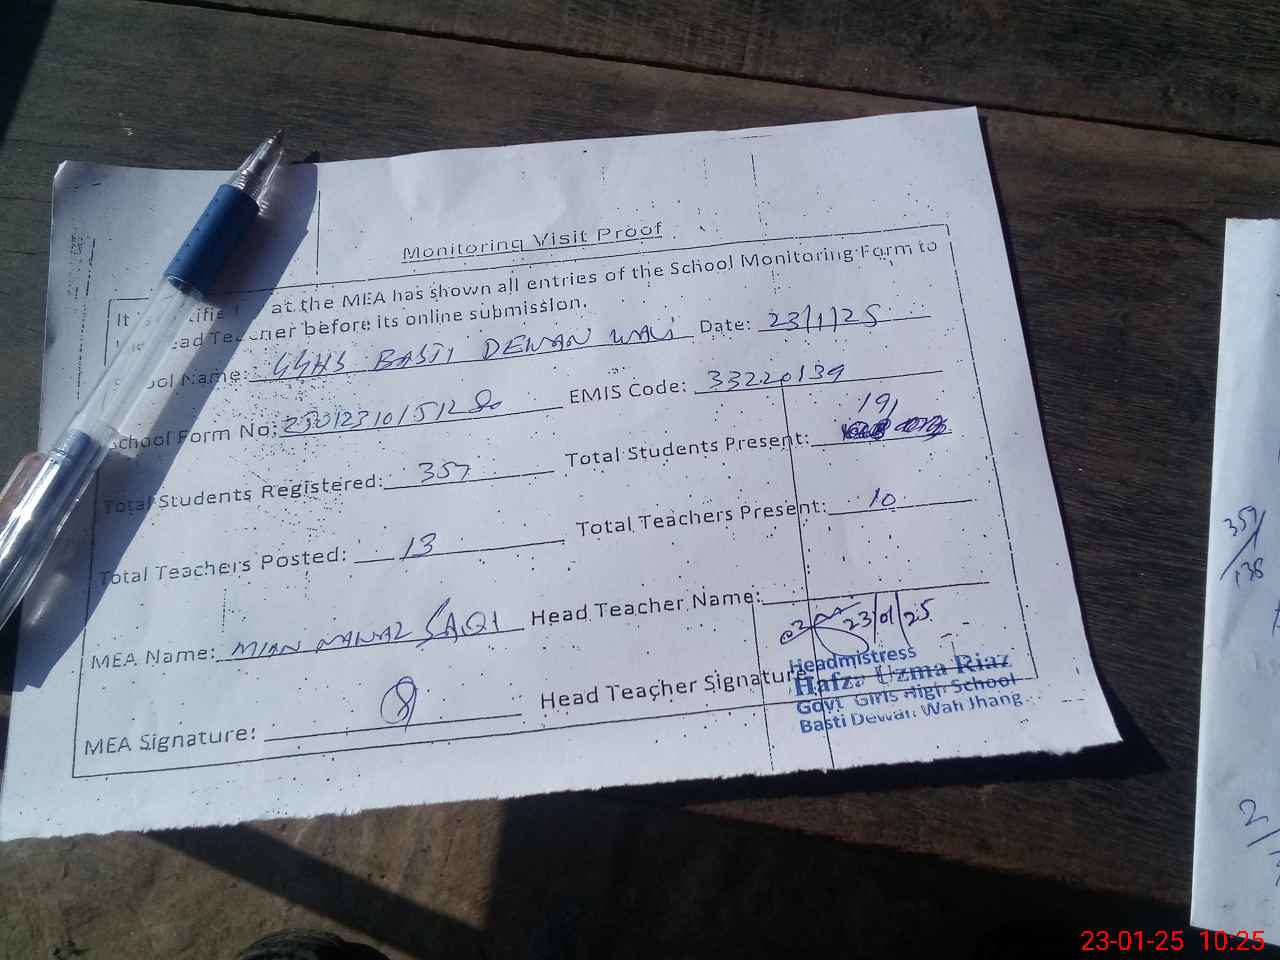 Monitoring Visit Proof
at the MEA has shown all entries of the School Monitoring Form to
before its online submission.
Name: GGHS BASTI DEWAN WALI Date: 23/1/25
School Form No: EMIS Code: 33220139
Total Students Registered: 357 Total Students Present: 191
Total Teachers Posted: 13 Total Teachers Present: 10
MEA Name: MIAN NAWAZ SAQI Head Teacher Name:
23/01/25
MEA Signature: Head Teacher Signature
Headmistress
Hafza Uzma Riaz
Govt Girls High School
Basti Dewan Wali Jhang
357/
138
2/
23-01-25 10:25